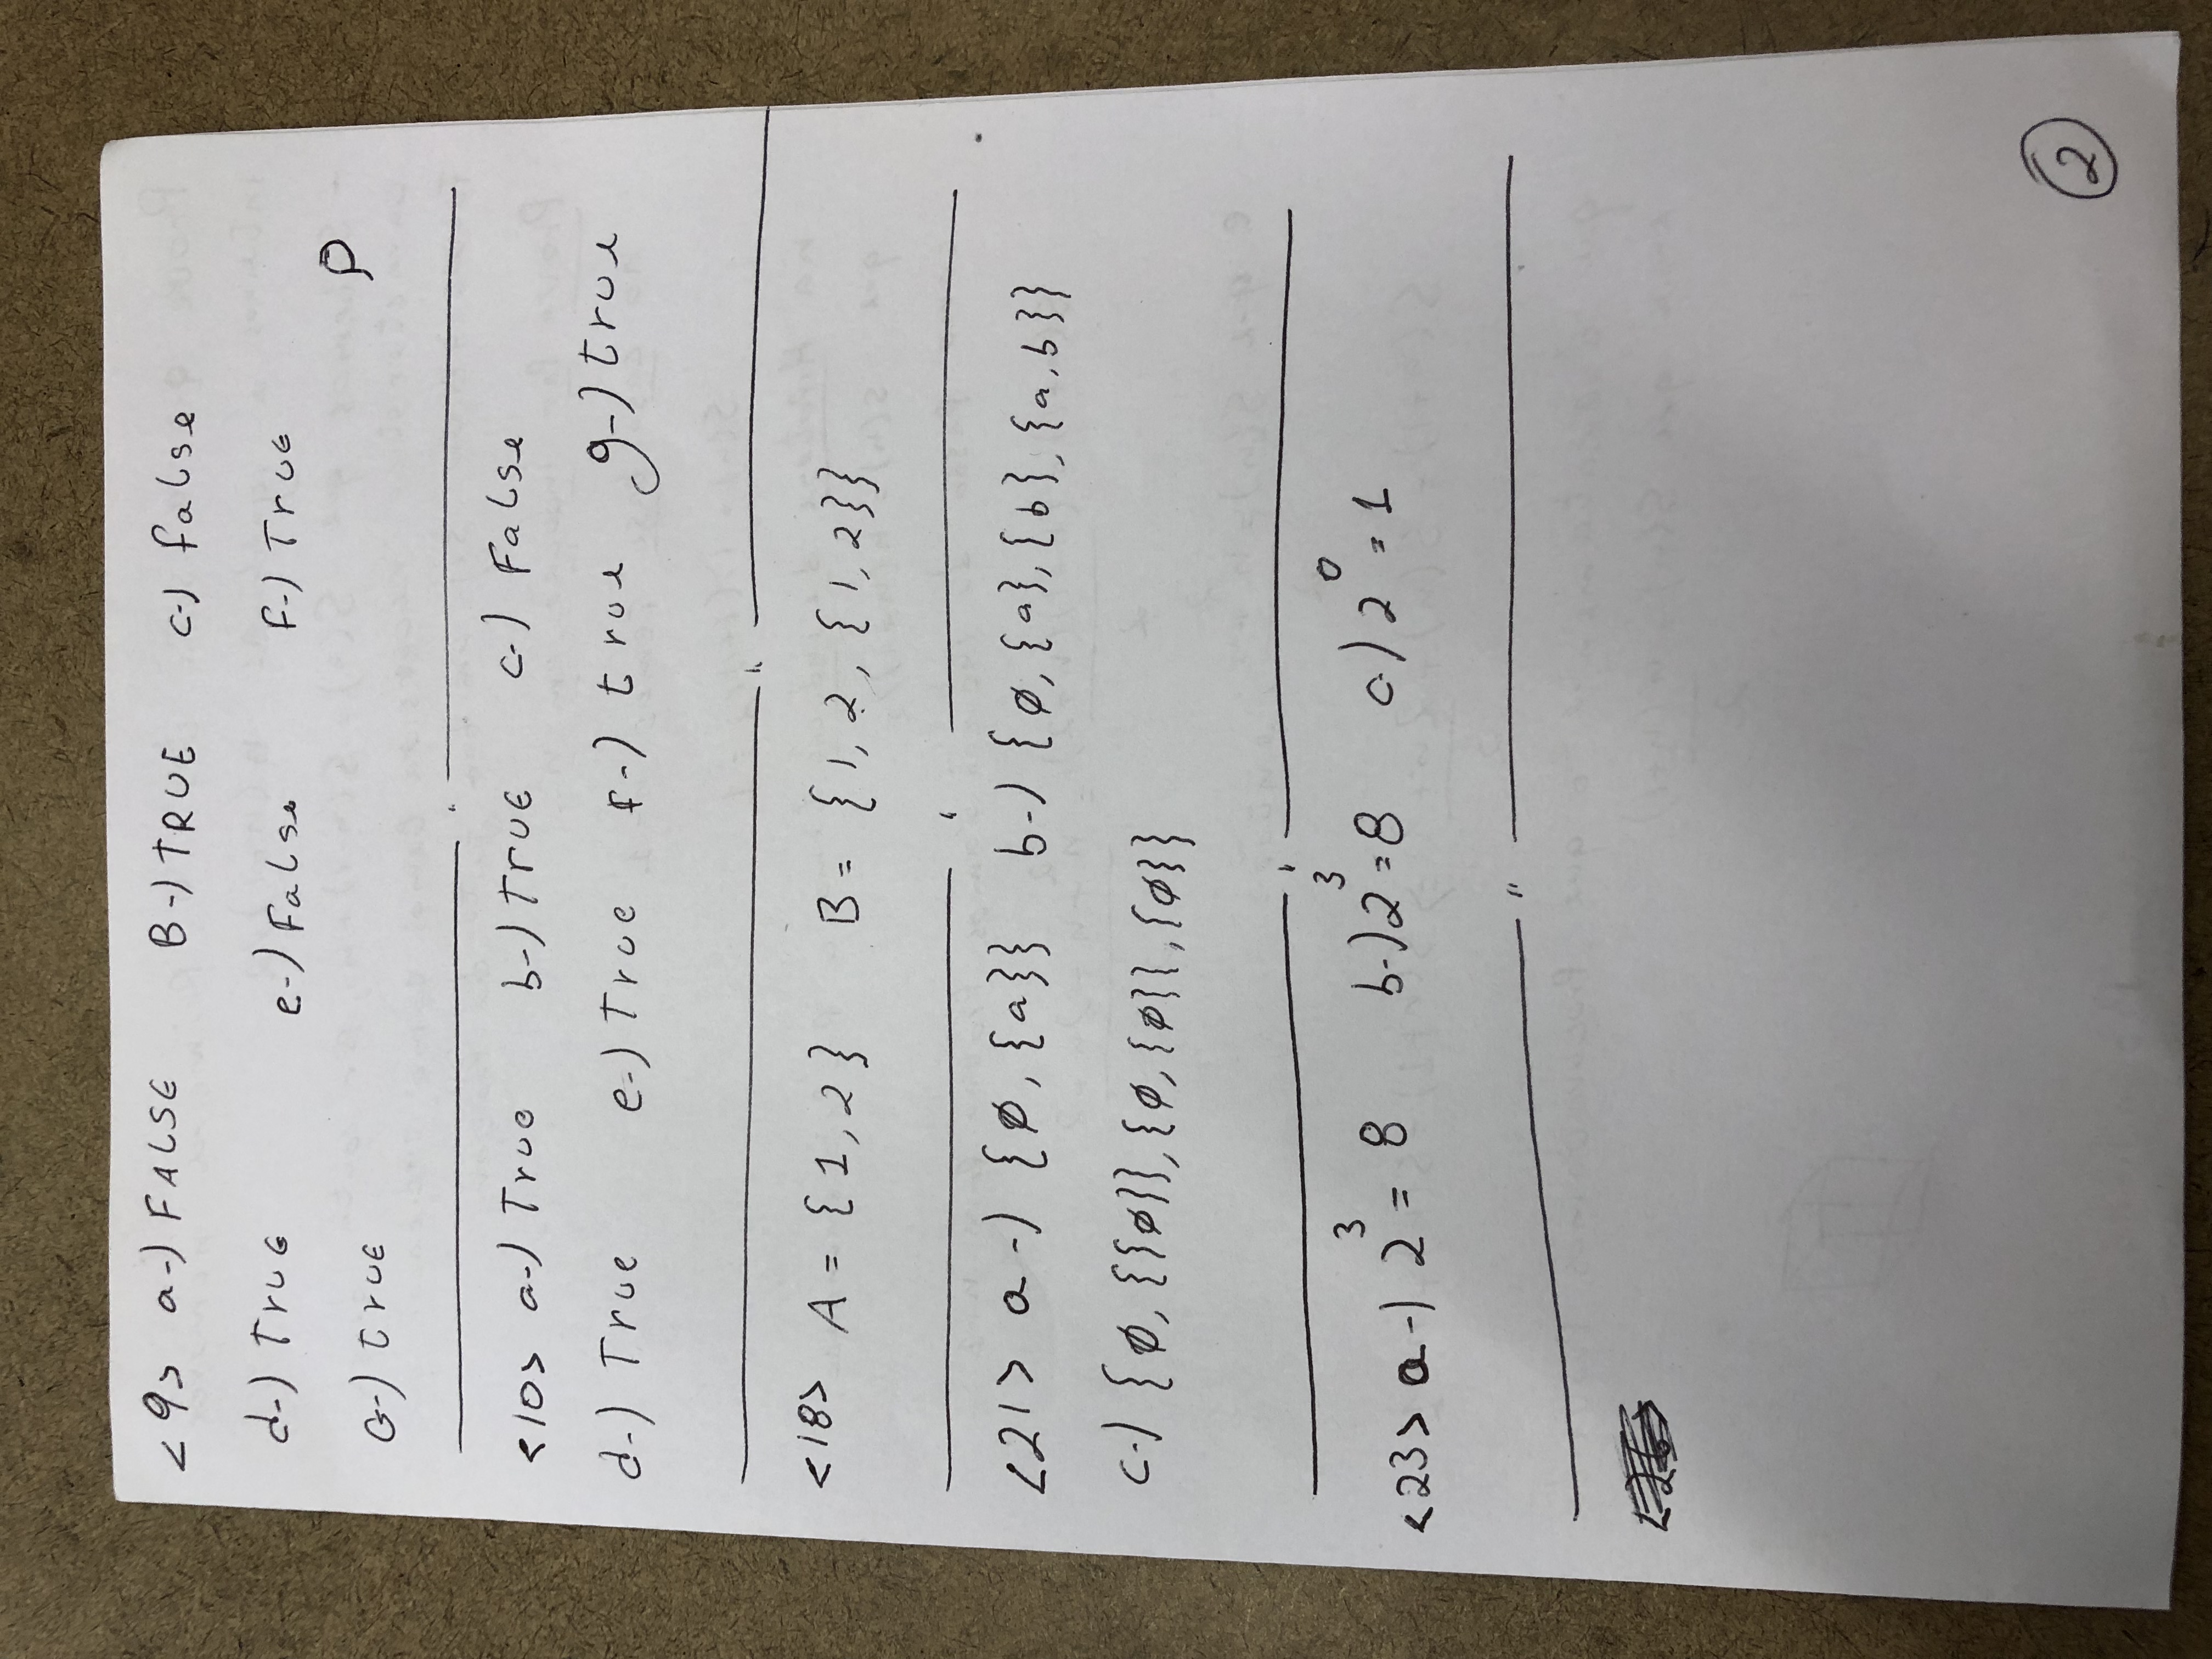 <9> a-) FALSE B-) TRUE c-) false
d-) True e-) False F-) True
G-) true
P
<10> a-) True b-) true c-) False
d-) True e-) True f-) true g-) true
<18> A = {1,2} B = {1,2,{1,2}}
<21> a-) {∅,{a}} b-) {∅,{a},{b},{a,b}}
c-) {∅,{{∅}},{∅,{∅}},{∅}}
<23> a-) 2³ = 8 b-) 2³ = 8 c-) 2⁰ = 1
2